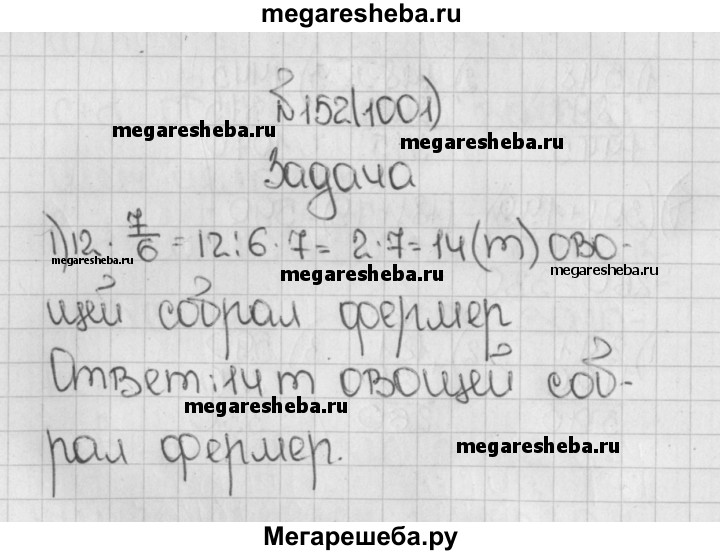 megaresheba.ru
№152(1001)
megaresheba.ru
megaresheba.ru
Задача
1) 12 · 7/6 = 12 : 6 · 7 = 2 · 7 = 14 (т) ово-
megaresheba.ru
megaresheba.ru
megaresheba.ru
щей собрал фермер
Ответ: 14 т овощей соб-
megaresheba.ru
рал фермер.
megaresheba.ru
Мегарешеба.ру